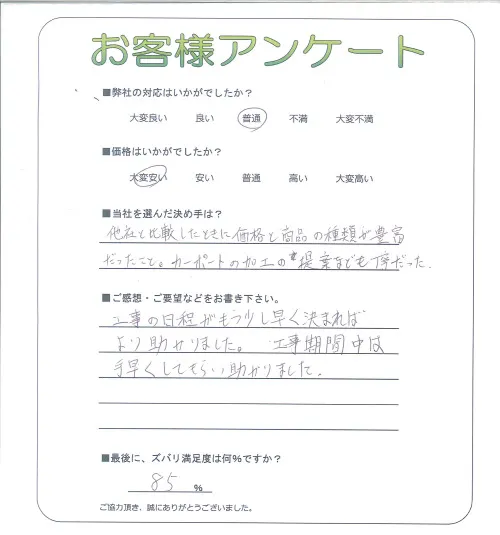 お客様アンケート
■弊社の対応はいかがでしたか?
大変良い 良い 普通 不満 大変不満
■価格はいかがでしたか?
大変安い 安い 普通 高い 大変高い
■当社を選んだ決め手は?
他社と比較したときに価格と商品の種類が豊富
だったこと。カーポートの加工の提案なども丁寧だった.
■ご感想・ご要望などをお書き下さい。
工事の日程がもう少し早く決まれば
より助かりました。 工事期間中は
手早くしてもらい助かりました.
■最後に、ズバリ満足度は何%ですか?
85 %
ご協力頂き、誠にありがとうございました。